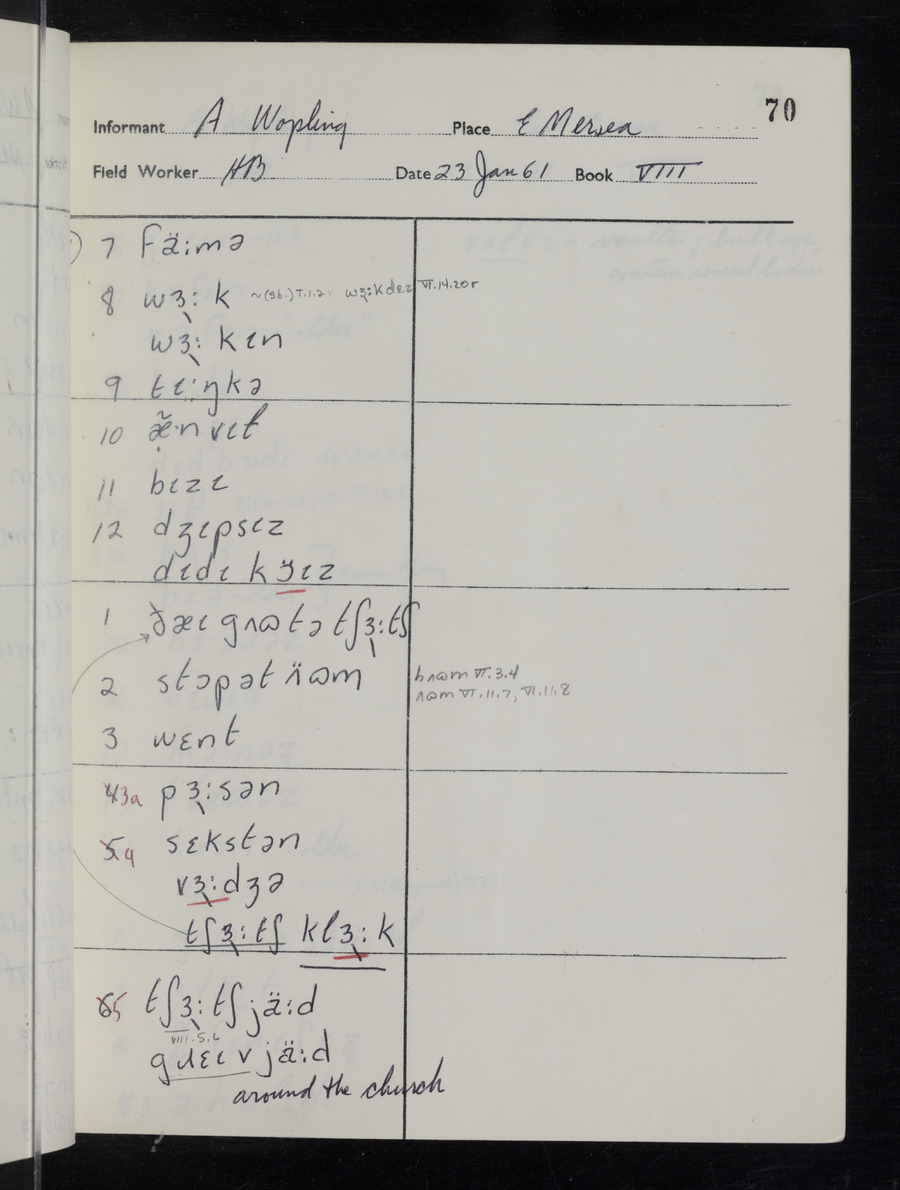 70
Informant A Wopling Place E Mersea
Field Worker HB Date 23 Jan 61 Book VIII
) 7 fä:mə
8 wɜ: k ~(sb.) V.1.2. wɜ:kdɛz VI.14.20r
wɜ: kɪn
9 tɪ:ŋkə
10 æ̃·nvɪt
11 bɪzɪ
12 dʒɪpsɪz
dɪdɪ kɜ̈ɪz
1 ðæɪ gʌʊtə tʃɜ:tʃ
2 stɔpət ʌ̈ʊm hʌʊm VI.3.4
ʌʊm VI.11.7, VI.11.8
3 wɛnt
4 3a pɜ:sən
5 4 sɛkstən
vɜ:dʒə
tʃɜ:tʃ klɜ:k
6 5 tʃɜ:tʃ jä:d
VIII.5.1
gɹɛɪv jä:d
around the church